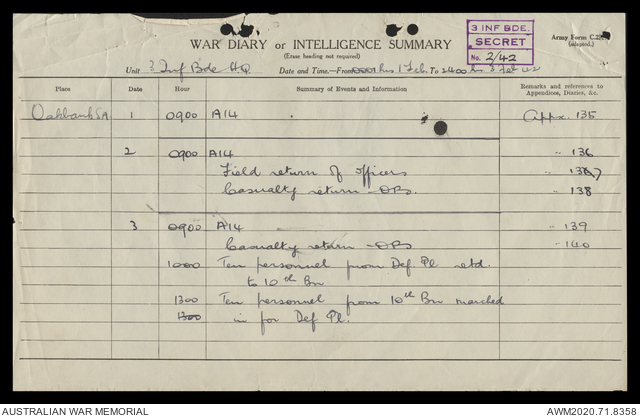 WAR DIARY or INTELLIGENCE SUMMARY
(Erase heading not required)
3 INF BDE.
SECRET
No. 2/42
Army Form C.
(adapted.)
Unit 3 Inf Bde HQ Date and Time.—From 0001 hrs 1 Feb. To 2400 hrs 3 Feb 42
Place Date Hour Summary of Events and Information Remarks and references to Appendices, Diaries, &c.
Oakbank SA 1 0900 A14 Appx. 135
2 0900 A14 " 136
Field return of officers " 137
Casualty return - ORs. " 138
3 0900 A14 " 139
Casualty return - ORs " 140
1000 Ten personnel from Def Pl retd.
to 10th Bn
1300 Ten personnel from 10th Bn marched
1300 in for Def Pl.
AUSTRALIAN WAR MEMORIAL AWM2020.71.8358